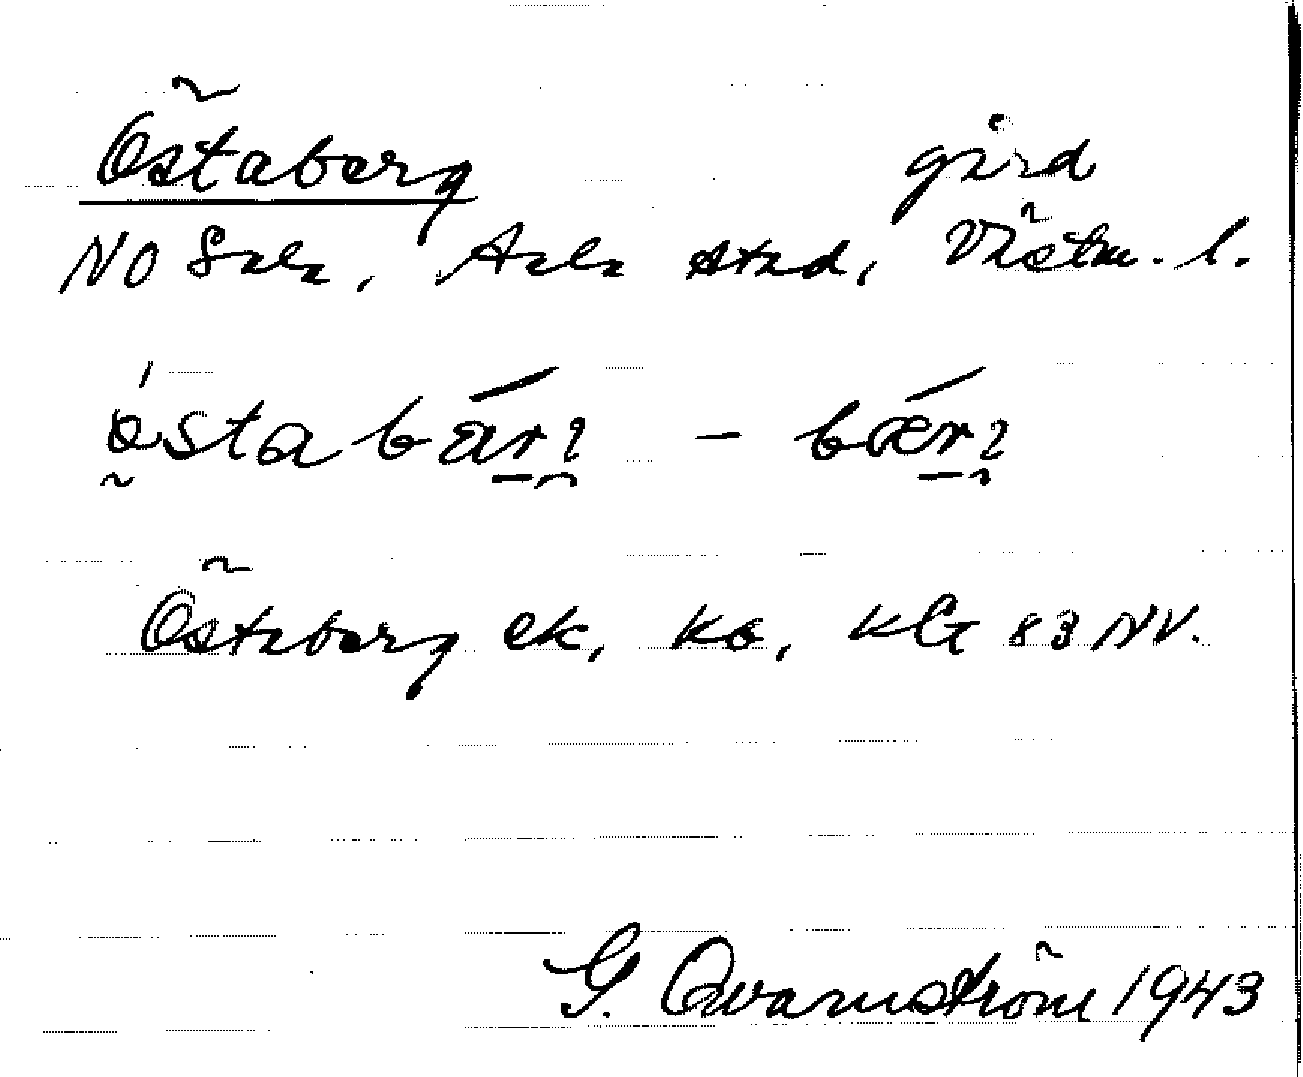 Östaberg gård
NO Sala, Sala stad, Västm. l.
östabär̲i̯ - bær̲i̯
Östaberg ek, kG 83 NV.
G. Qvarnström 1943